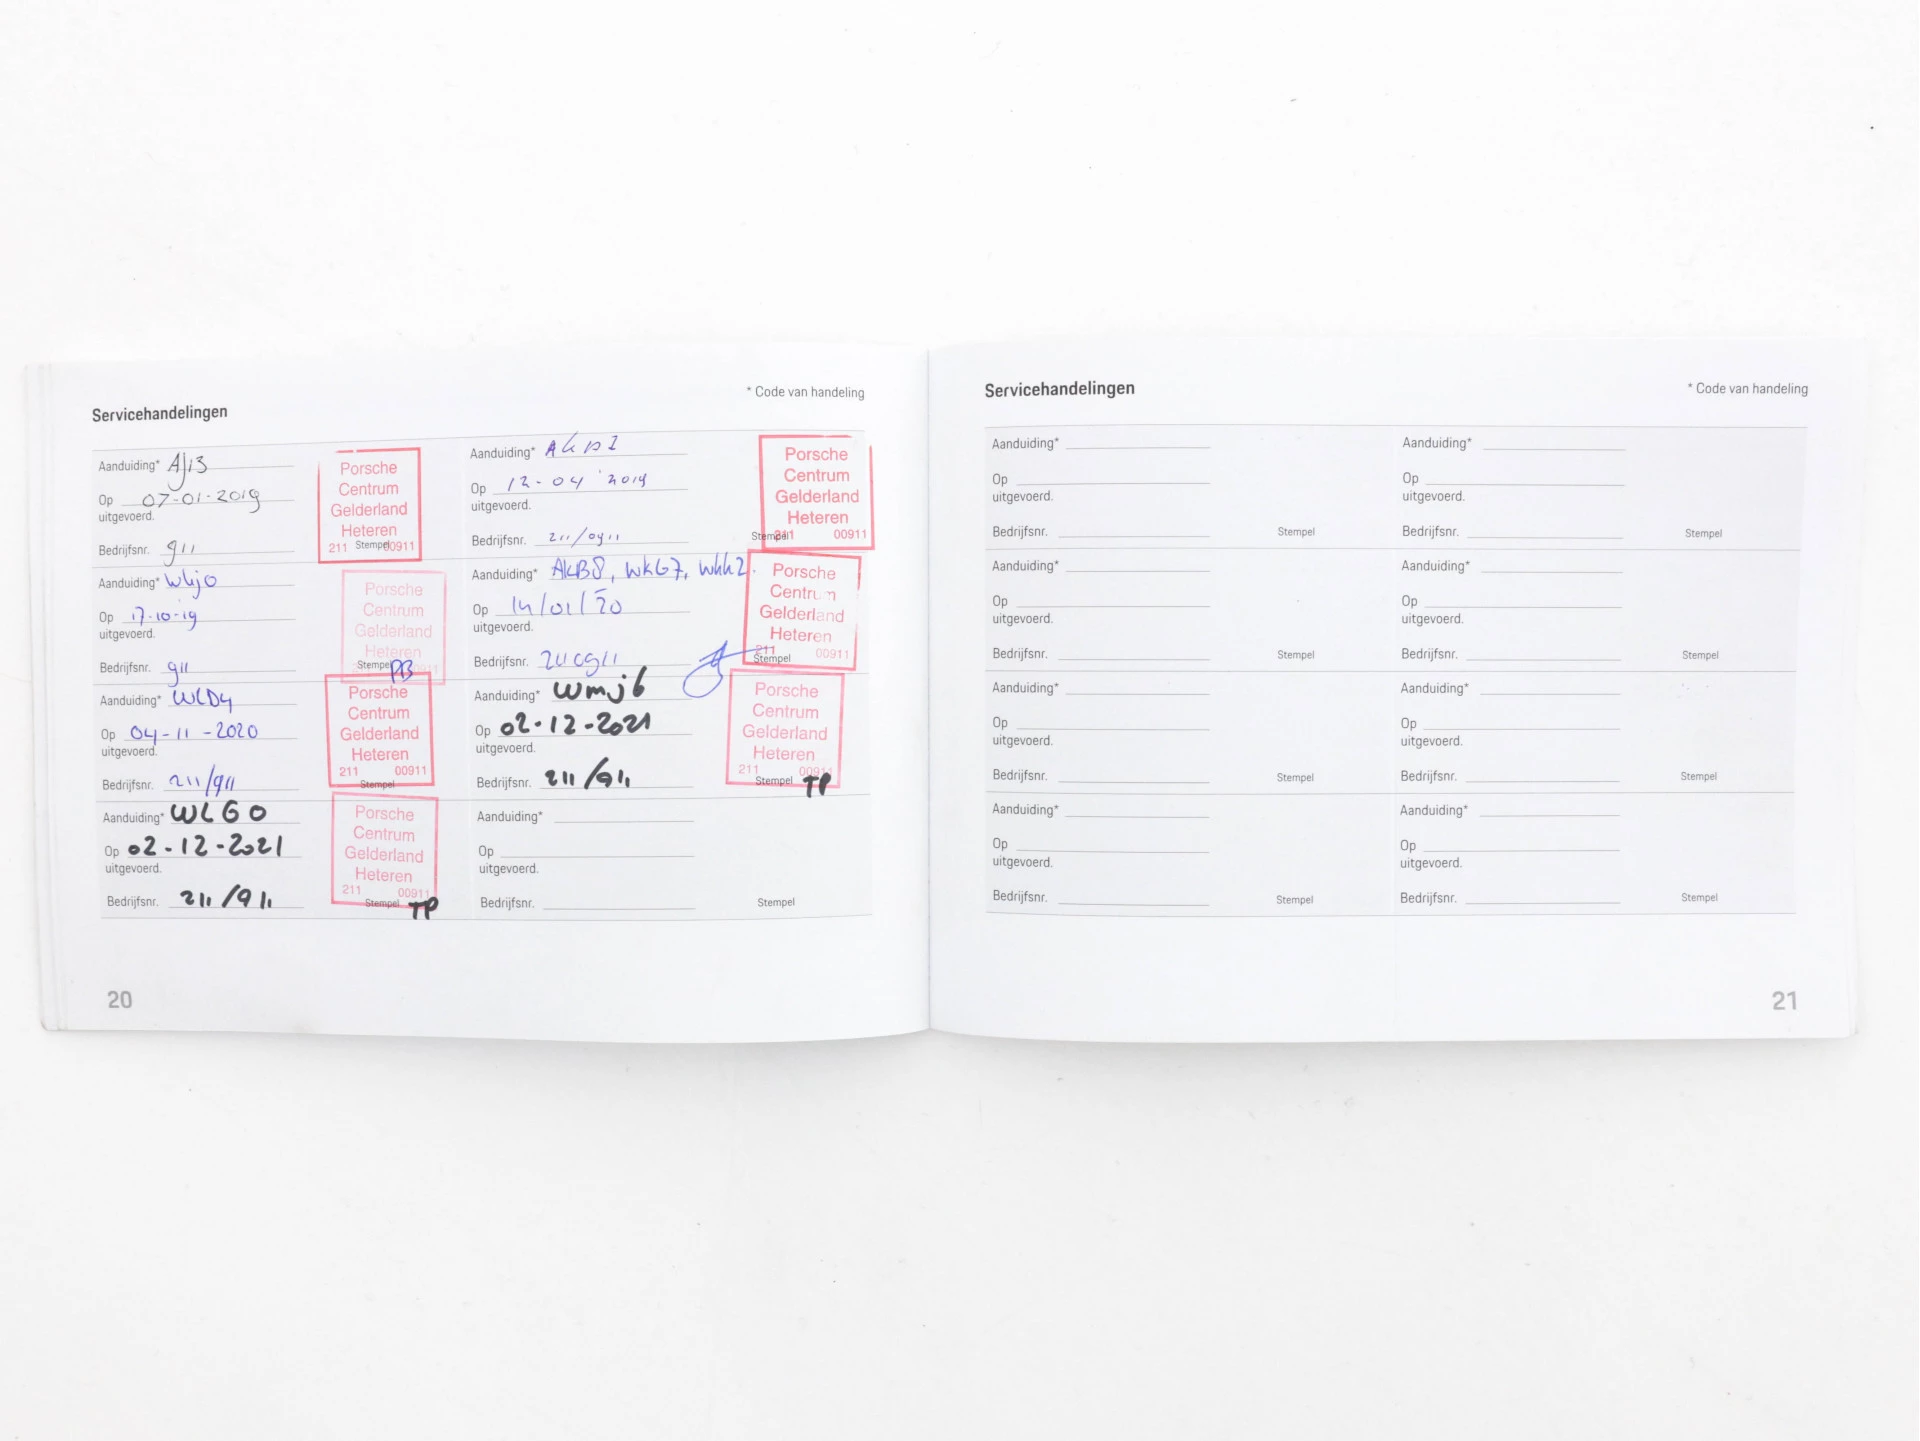 Servicehandelingen
* Code van handeling
Aanduiding* AJ13
Op 07-01-2019
uitgevoerd.
Bedrijfsnr. 911
Stempel
Porsche
Centrum
Gelderland
Heteren
211 00911
Aanduiding*
Op 12-04-2019
uitgevoerd.
Bedrijfsnr. 211/0911
Stempel
Porsche
Centrum
Gelderland
Heteren
211 00911
Aanduiding* WKJ0
Op 17-10-19
uitgevoerd.
Bedrijfsnr. 911
Stempel PB
Porsche
Centrum
Gelderland
Heteren
Aanduiding* AKB8, WKG7, WKK2.
Op 14/01/20
uitgevoerd.
Bedrijfsnr.
Stempel
Porsche
Centrum
Gelderland
Heteren
211 00911
Aanduiding* WLD4
Op 04-11-2020
uitgevoerd.
Bedrijfsnr. 211/911
Stempel
Porsche
Centrum
Gelderland
Heteren
211 00911
Aanduiding* WMJ6
Op 02-12-2021
uitgevoerd.
Bedrijfsnr. 211/911
Stempel TP
Porsche
Centrum
Gelderland
Heteren
211 00911
Aanduiding* WLG0
Op 02-12-2021
uitgevoerd.
Bedrijfsnr. 211/911
Stempel TP
Porsche
Centrum
Gelderland
Heteren
211 00911
Aanduiding*
Op
uitgevoerd.
Bedrijfsnr.
Stempel
20
Servicehandelingen
* Code van handeling
Aanduiding*
Op
uitgevoerd.
Bedrijfsnr.
Stempel
Aanduiding*
Op
uitgevoerd.
Bedrijfsnr.
Stempel
Aanduiding*
Op
uitgevoerd.
Bedrijfsnr.
Stempel
Aanduiding*
Op
uitgevoerd.
Bedrijfsnr.
Stempel
Aanduiding*
Op
uitgevoerd.
Bedrijfsnr.
Stempel
Aanduiding*
Op
uitgevoerd.
Bedrijfsnr.
Stempel
Aanduiding*
Op
uitgevoerd.
Bedrijfsnr.
Stempel
Aanduiding*
Op
uitgevoerd.
Bedrijfsnr.
Stempel
21